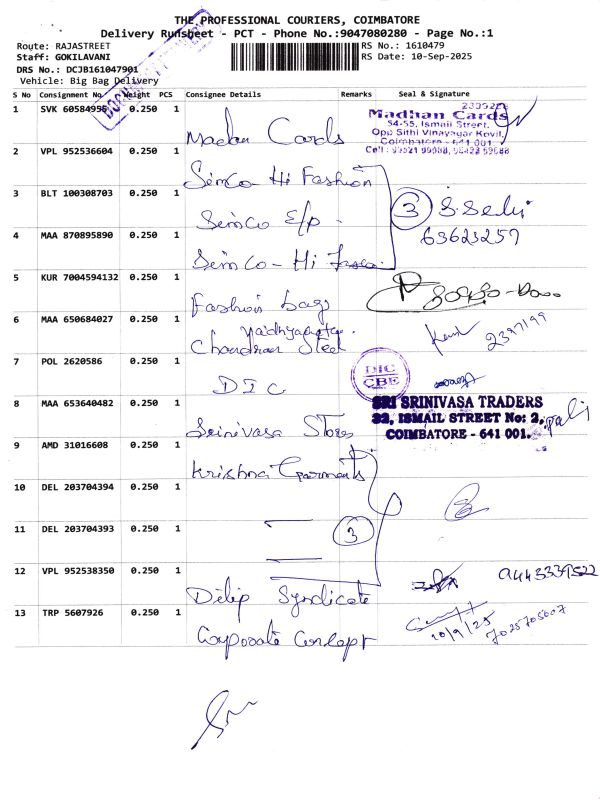 THE PROFESSIONAL COURIERS, COIMBATORE
Delivery Runsheet - PCT - Phone No.:9047080280 - Page No.:1
Route: RAJASTREET
RS No.: 1610479
Staff: GOKILAVANI
RS Date: 10-Sep-2025
DRS No.: DCJB161047901
Vehicle: Big Bag Delivery
S No Consignment No Weight PCS Consignee Details Remarks Seal & Signature
1 SVK 60584995 0.250 1 Madan Cards
Madhan Cards
54-55, Ismail Street,
Opp Sithi Vinayagar Kovil,
Coimbatore - 641 001
2 VPL 952536604 0.250 1 Simco Hi Fashion
3 BLT 100308703 0.250 1 Simco E/p.
3 S. Selvi
63623257
4 MAA 870895890 0.250 1 Simco - Hi
5 KUR 7004594132 0.250 1 Fashion bags
6 MAA 650684027 0.250 1 Chandran Steel
2397199
7 POL 2620586 0.250 1 DIC
DIC
CBE
8 MAA 653640482 0.250 1 Srinivasa Stores
SRI SRINIVASA TRADERS
32, ISMAIL STREET No: 2,
COIMBATORE - 641 001.
9 AMD 31016608 0.250 1 Krishna Garments
10 DEL 203704394 0.250 1
11 DEL 203704393 0.250 1
3
12 VPL 952538350 0.250 1 Dilip Syndicate
13 TRP 5607926 0.250 1 Corporate Concept
10/9/25 7025705007